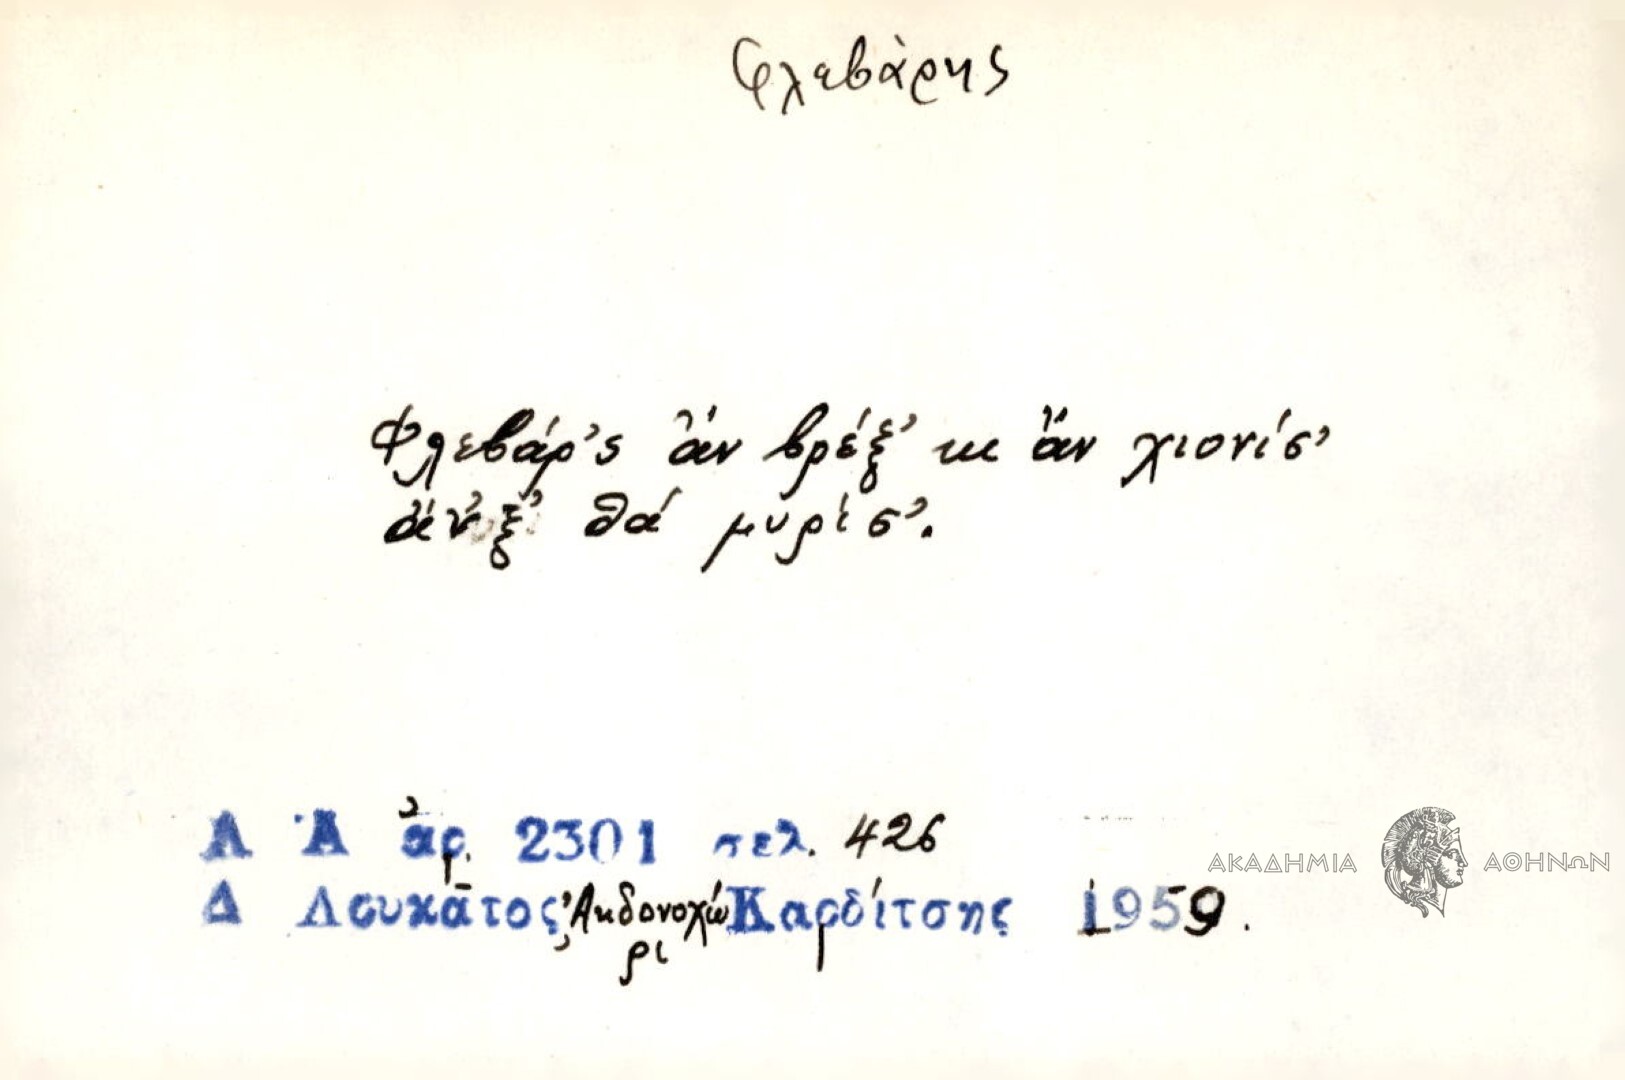 Φλεβάρης
Φλεβάρ'ς ἄν βρέξ' κι ἄν χιονίσ'
ἄν'ξ' θά μυρίσ'.
Λ Ἀ ἀρ. 2301 σελ. 426
Δ Λουκᾶτος, Ἀηδονοχώ Καρδίτσης 1959.
ρι
ΑΚΑΔΗΜΙΑ ΑΘΗΝΩΝ